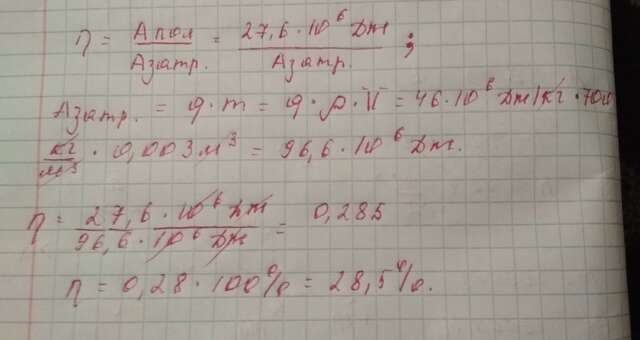 η = Aпол / Aзатр. = 27,6 · 10⁶ Дж / Aзатр. ;
Aзатр. = q · m = q · ρ · V = 46 · 10⁶ Дж/кг · 700
кг/м³ · 0,003 м³ = 96,6 · 10⁶ Дж.
η = 27,6 · 10⁶ Дж / 96,6 · 10⁶ Дж = 0,285
η = 0,28 · 100% = 28,5%.